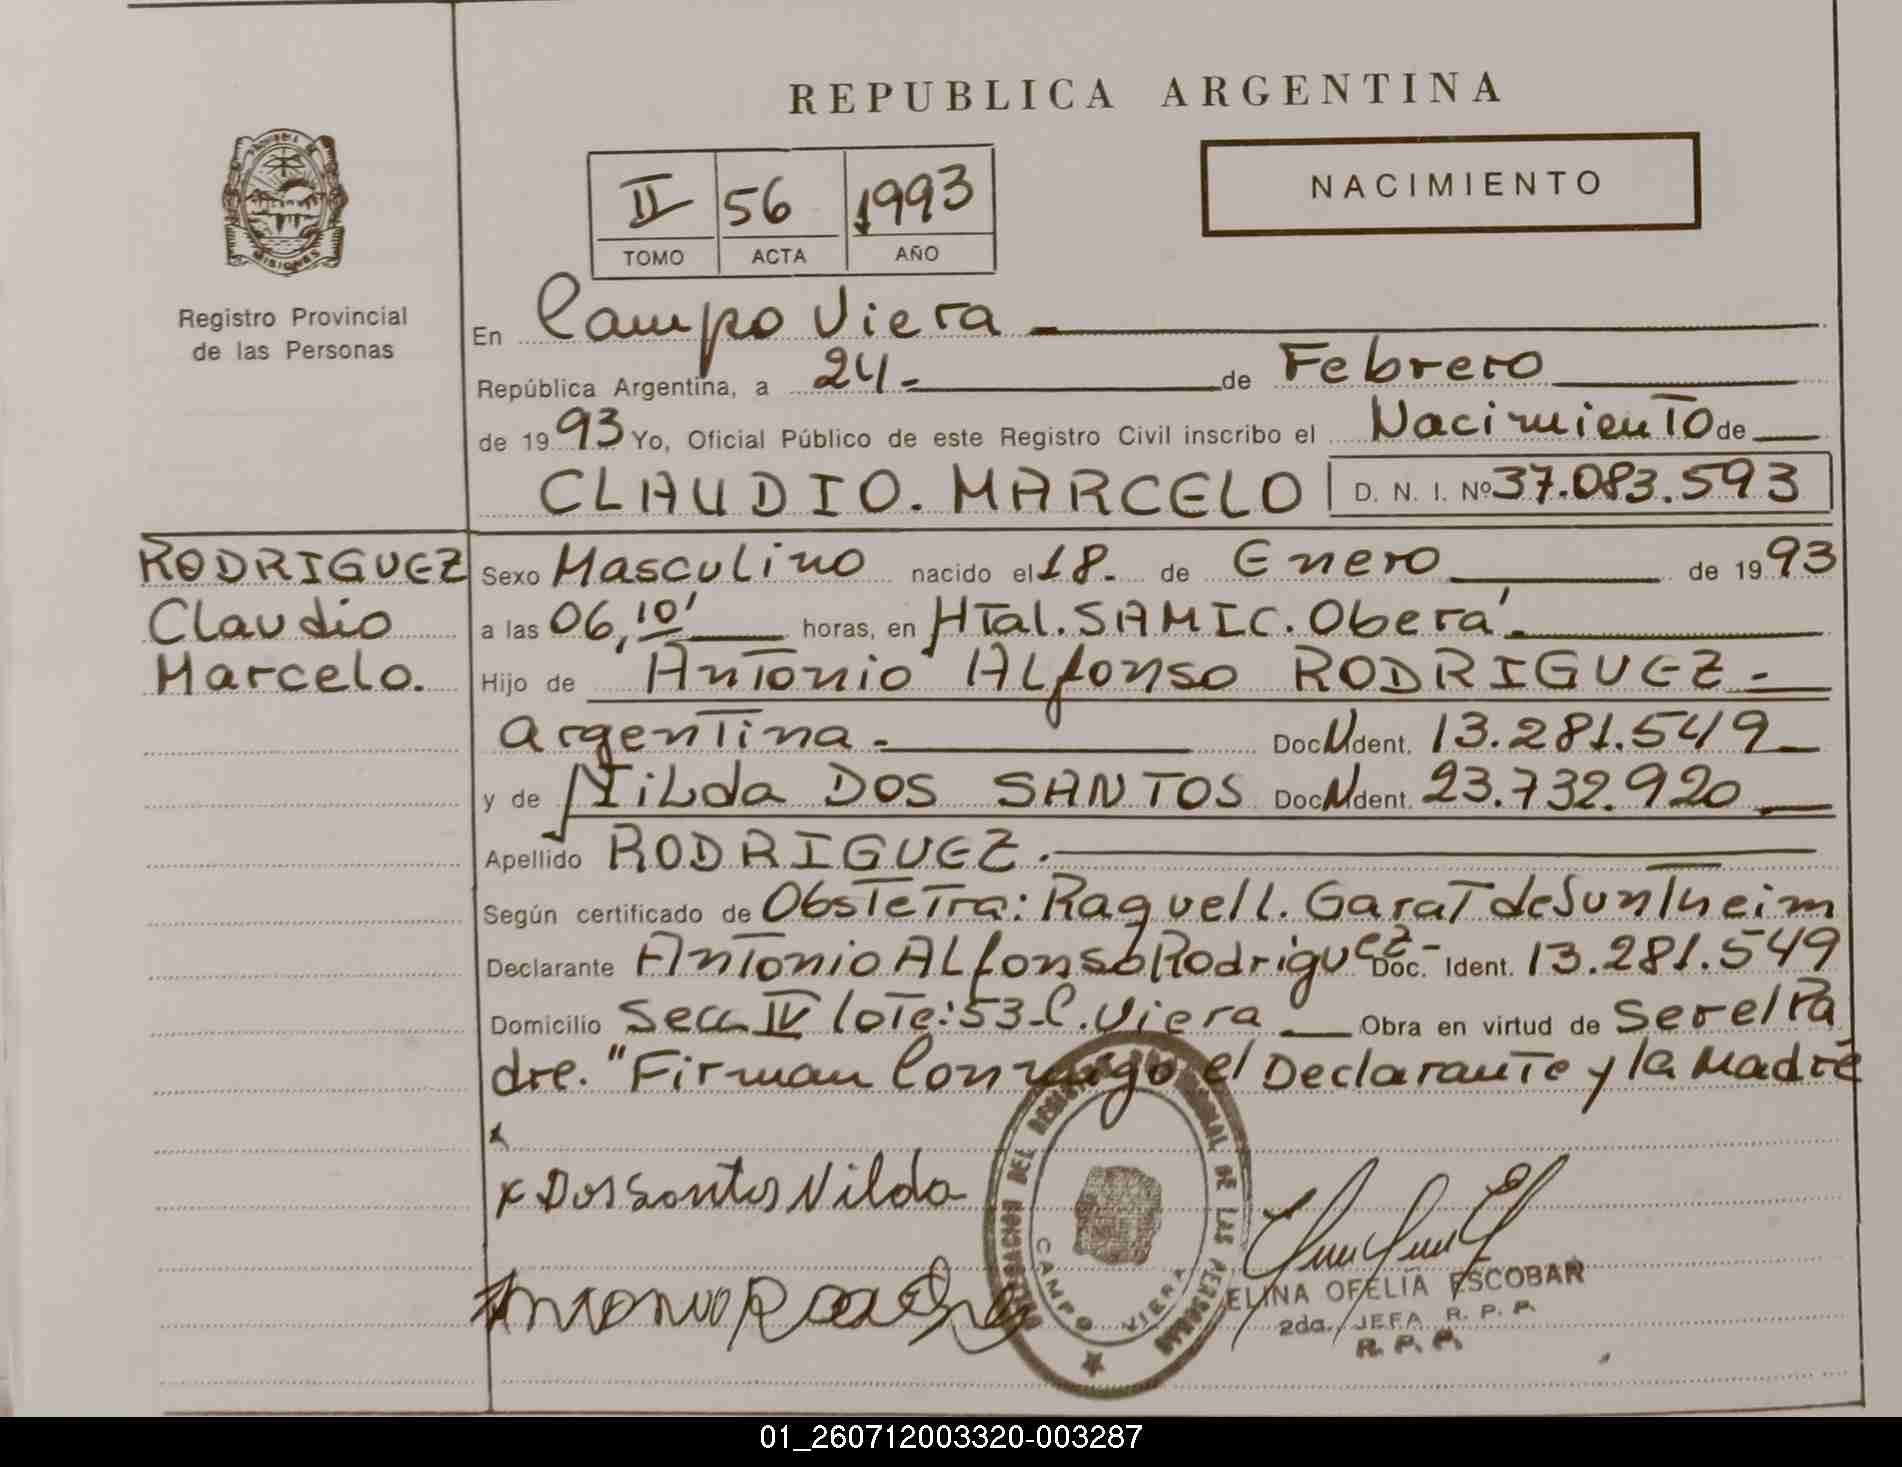 REPUBLICA ARGENTINA
NACIMIENTO
II 56 1993
TOMO ACTA AÑO
PROVINCIA DE
MISIONES
Registro Provincial
de las Personas
En Campo Viera
República Argentina, a 24 de Febrero
de 1993 Yo, Oficial Público de este Registro Civil inscribo el Nacimiento de
CLAUDIO. MARCELO D. N. I. Nº 37.083.593
RODRIGUEZ
Claudio
Marcelo.
Sexo Masculino nacido el 18. de Enero de 1993
a las 06,10' horas, en HTal. SAMIC. Oberá.
Hijo de Antonio ALfonso RODRIGUEZ.
argentina. Doc. Ident. 13.281.549
y de NiLda DOS SANTOS Doc. Ident. 23.732.920
Apellido RODRIGUEZ.
Según certificado de Obstetra: Raquel l. Garat de Suntheim
Declarante Antonio ALfonso Rodriguez- Doc. Ident. 13.281.549
Domicilio Secc IV lote: 53 C. Viera Obra en virtud de ser el Pa
dre. "Firman Conmigo el Declarante y la Madre
x
x Dos Santos Nilda
Antonio
DELEGACION DEL REGISTRO PROVINCIAL DE LAS PERSONAS
CAMPO VIERA
ELINA OFELIA ESCOBAR
2da. JEFA R. P. P.
R. P. P.
01_260712003320-003287